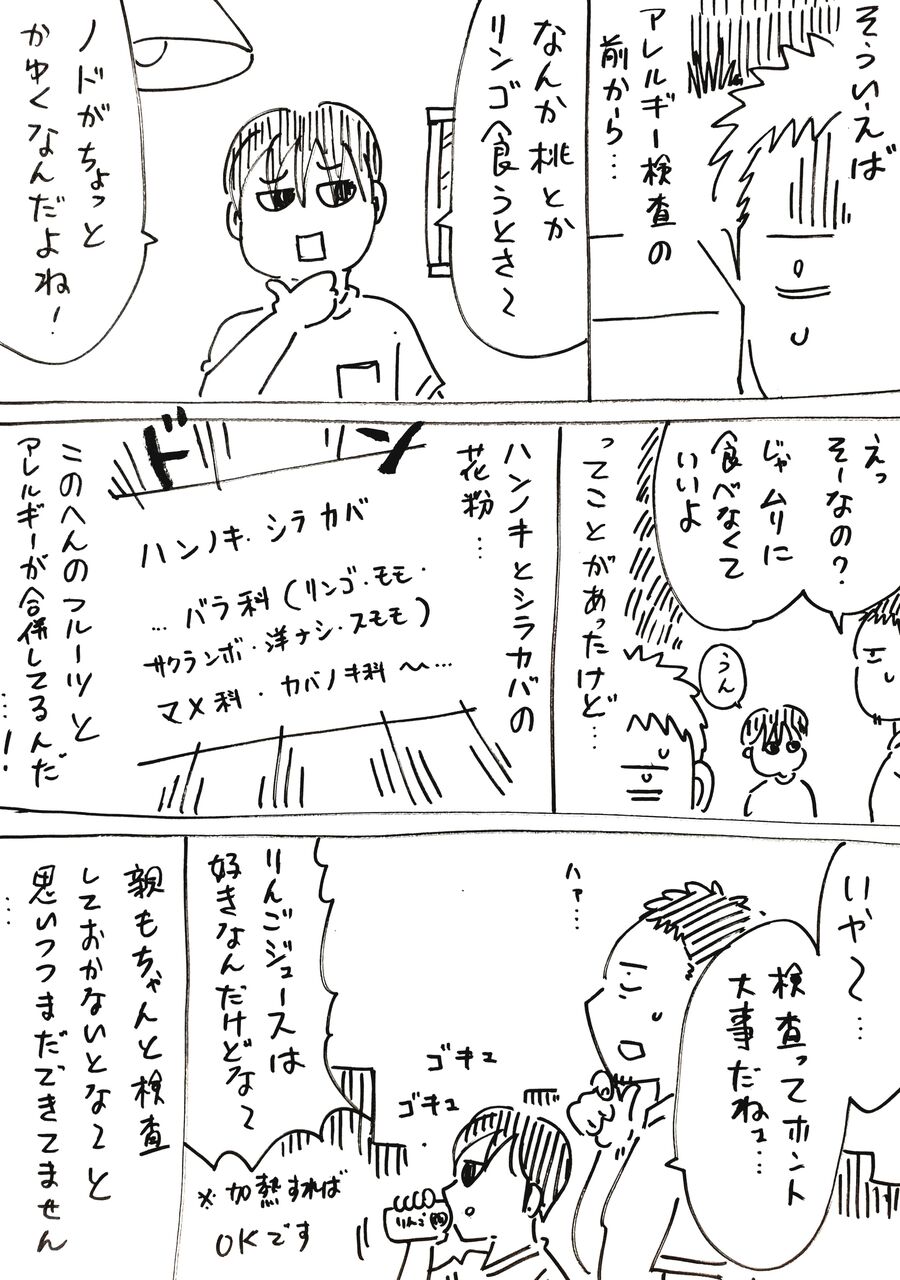 そういえば
アレルギー検査の
前から…
なんか桃とか
リンゴ食うときさ〜
ノドがちょっと
かゆくなんだよね!
えっ
そーなの?
じゃムリに
食べなくて
いいよ
うん
ってことがあったけど…
ハンノキとシラカバの
花粉…
ドン
ハンノキ・シラカバ
…バラ科(リンゴ・モモ・
サクランボ・洋ナシ・スモモ)
マメ科・カバノキ科〜…
このへんのフルーツと
アレルギーが合併してるんだ
…!
いや〜…
検査ってホント
大事だねェ…
ハァ…
ゴキュ
ゴキュ
りんご
りんごジュースは
好きなんだけどな〜
※加熱すれば
OKです
親もちゃんと検査
しておかないとな〜と
思いつつまだできてません
…